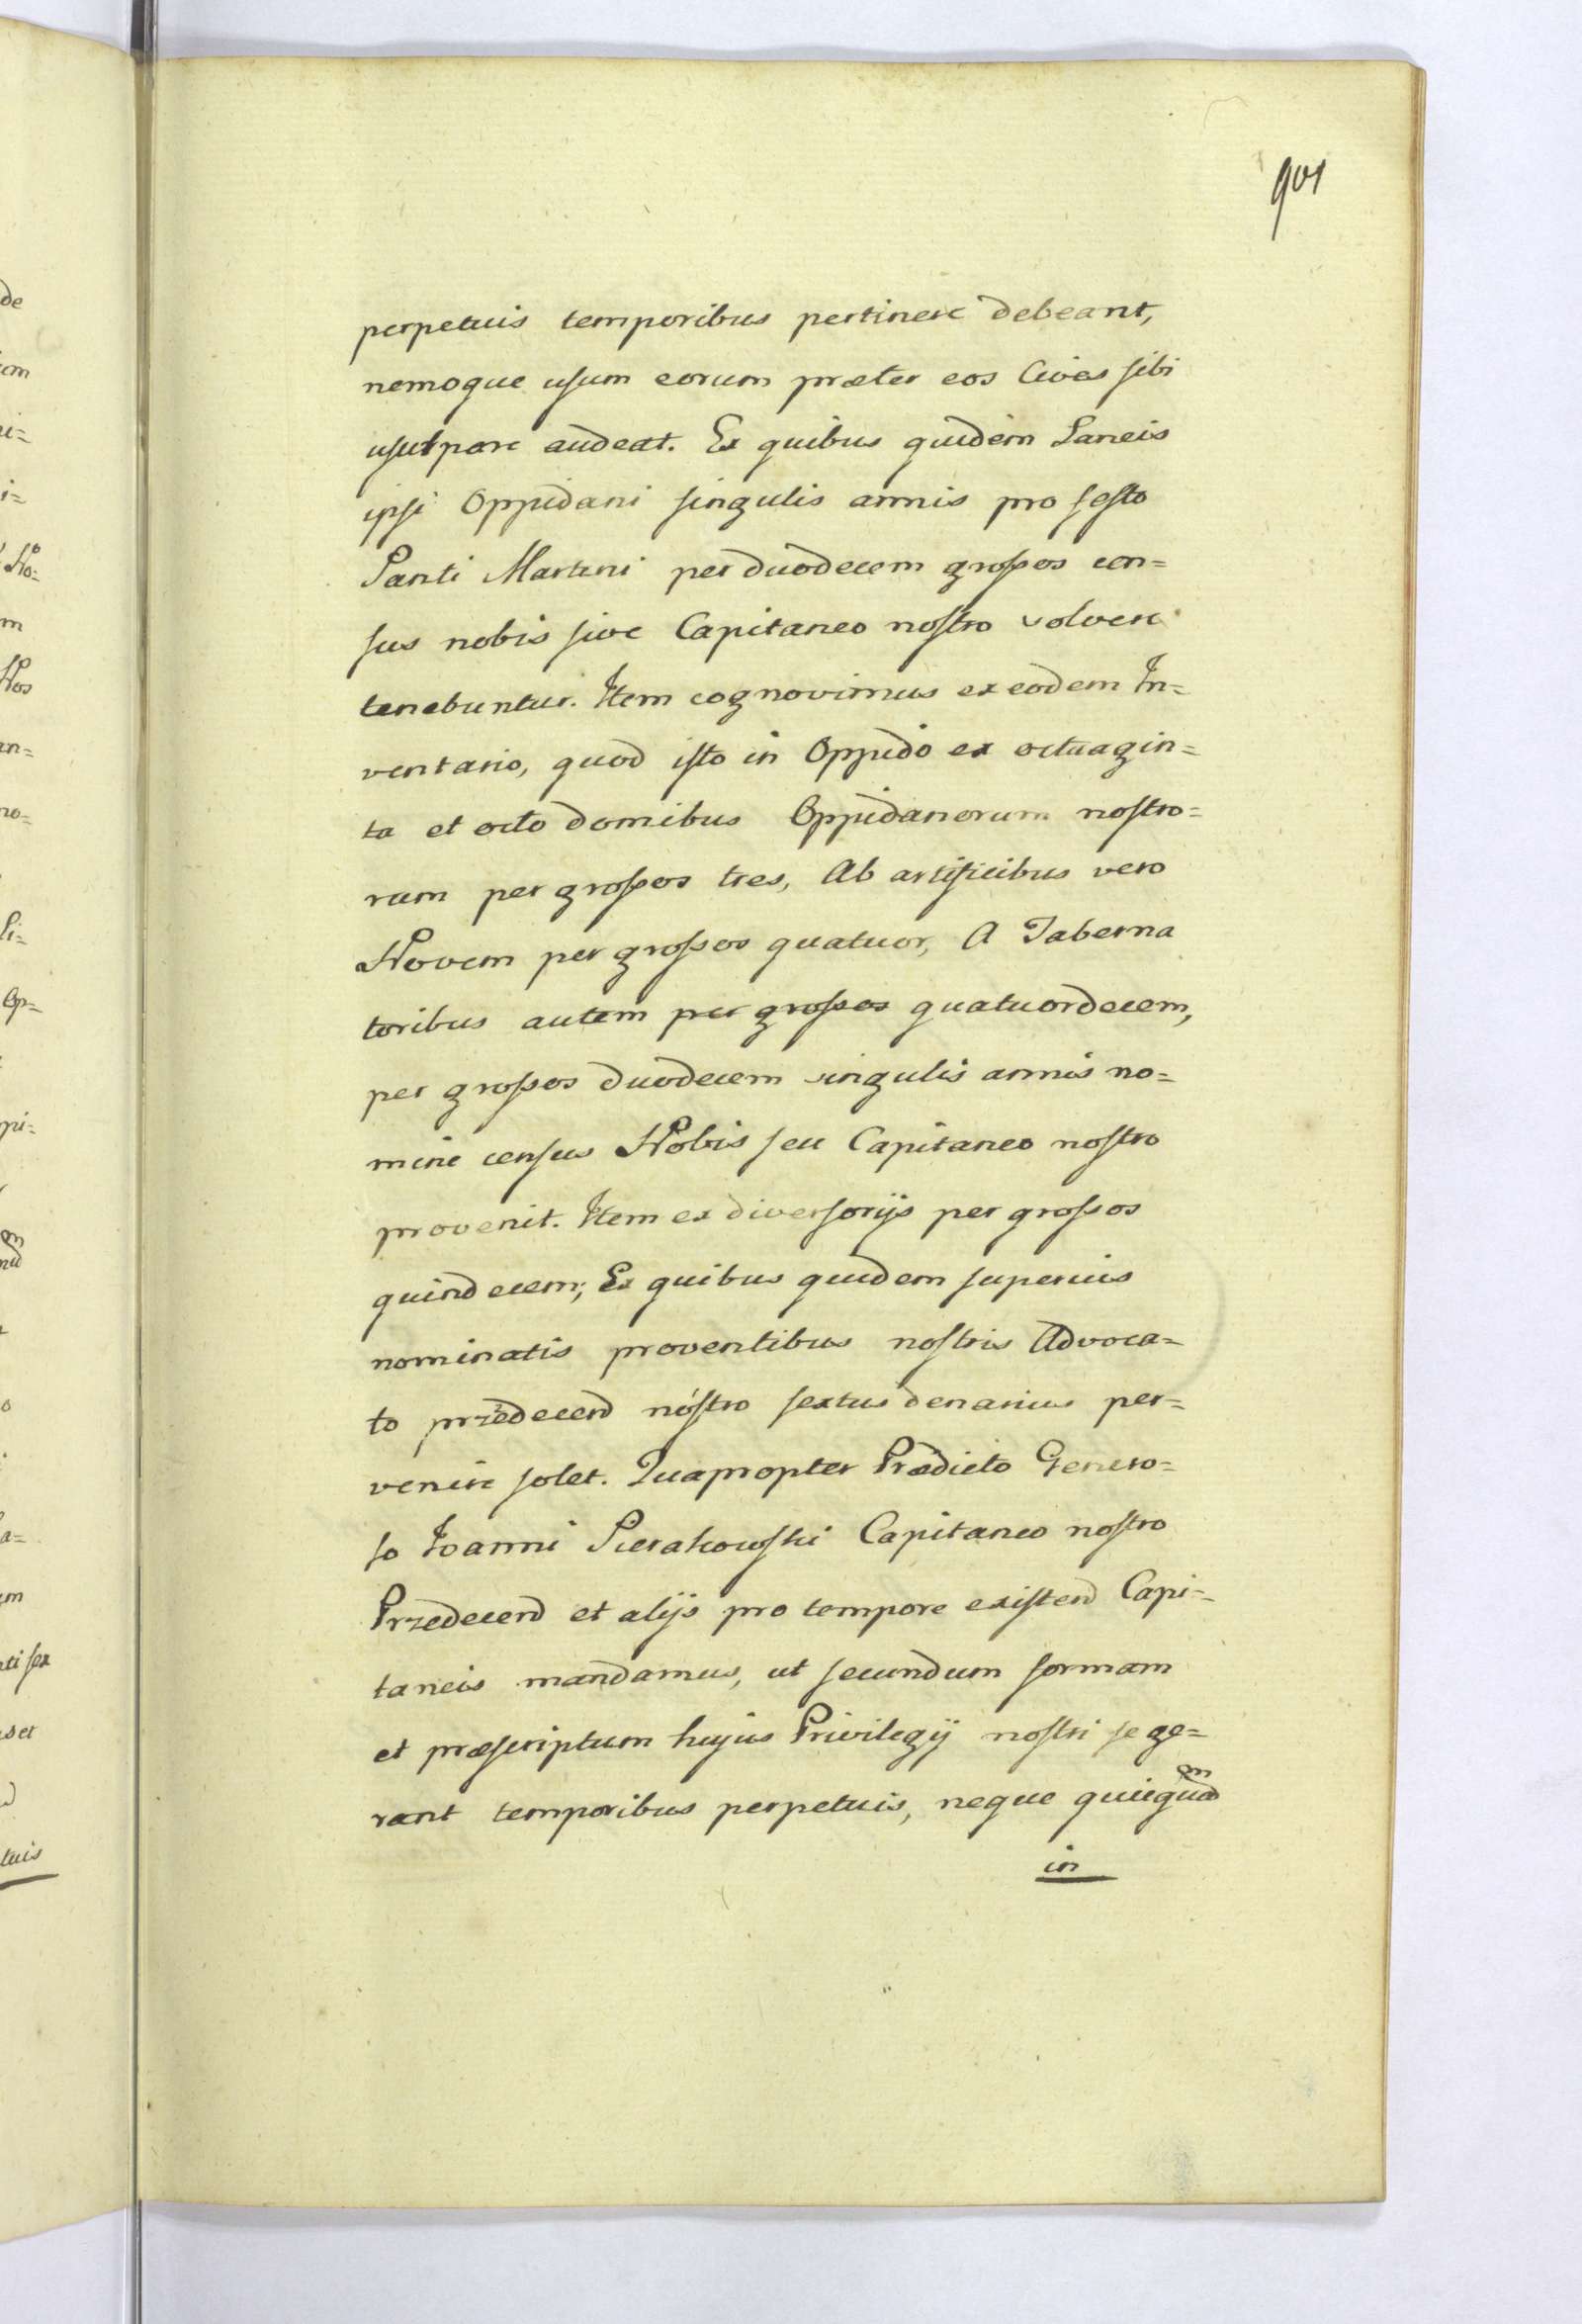 901
perpetuis temporibus pertinere debeant,
nemoque usum eorum præter eos Cives sibi
usurpare audeat. Ex quibus quidem Laneis
ipsi Oppidani singulis annis pro festo
Santi Martini per duodecem grossos cen=
sus nobis sive Capitaneo nostro solvere
tenebuntur. Item cognovimus ex eodem In=
ventario, quod isto in Oppido ex octuagin=
ta et octo domibus Oppidanorum nostro=
rum per grossos tres, Ab artificibus vero
Novem per grossos quatuor, A Taberna
toribus autem per grossos quatuordecem,
per grossos duodecem singulis annis no=
mine census Nobis seu Capitaneo nostro
provenit. Item ex diversorijs per grossos
quindecem; Ex quibus quidem superius
nominatis proventibus nostris Advoca=
to przedecend nostro sextus denarius per=
venire solet. Quapropter Prædicto Genero=
so Joanni Sierakowski Capitaneo nostro
Przedecend et alijs pro tempore existend Capi=
taneis mandamus, ut secundum formam
et præscriptum hujus Privilegij nostri se ge=
rant temporibus perpetuis, neque quicquam
in